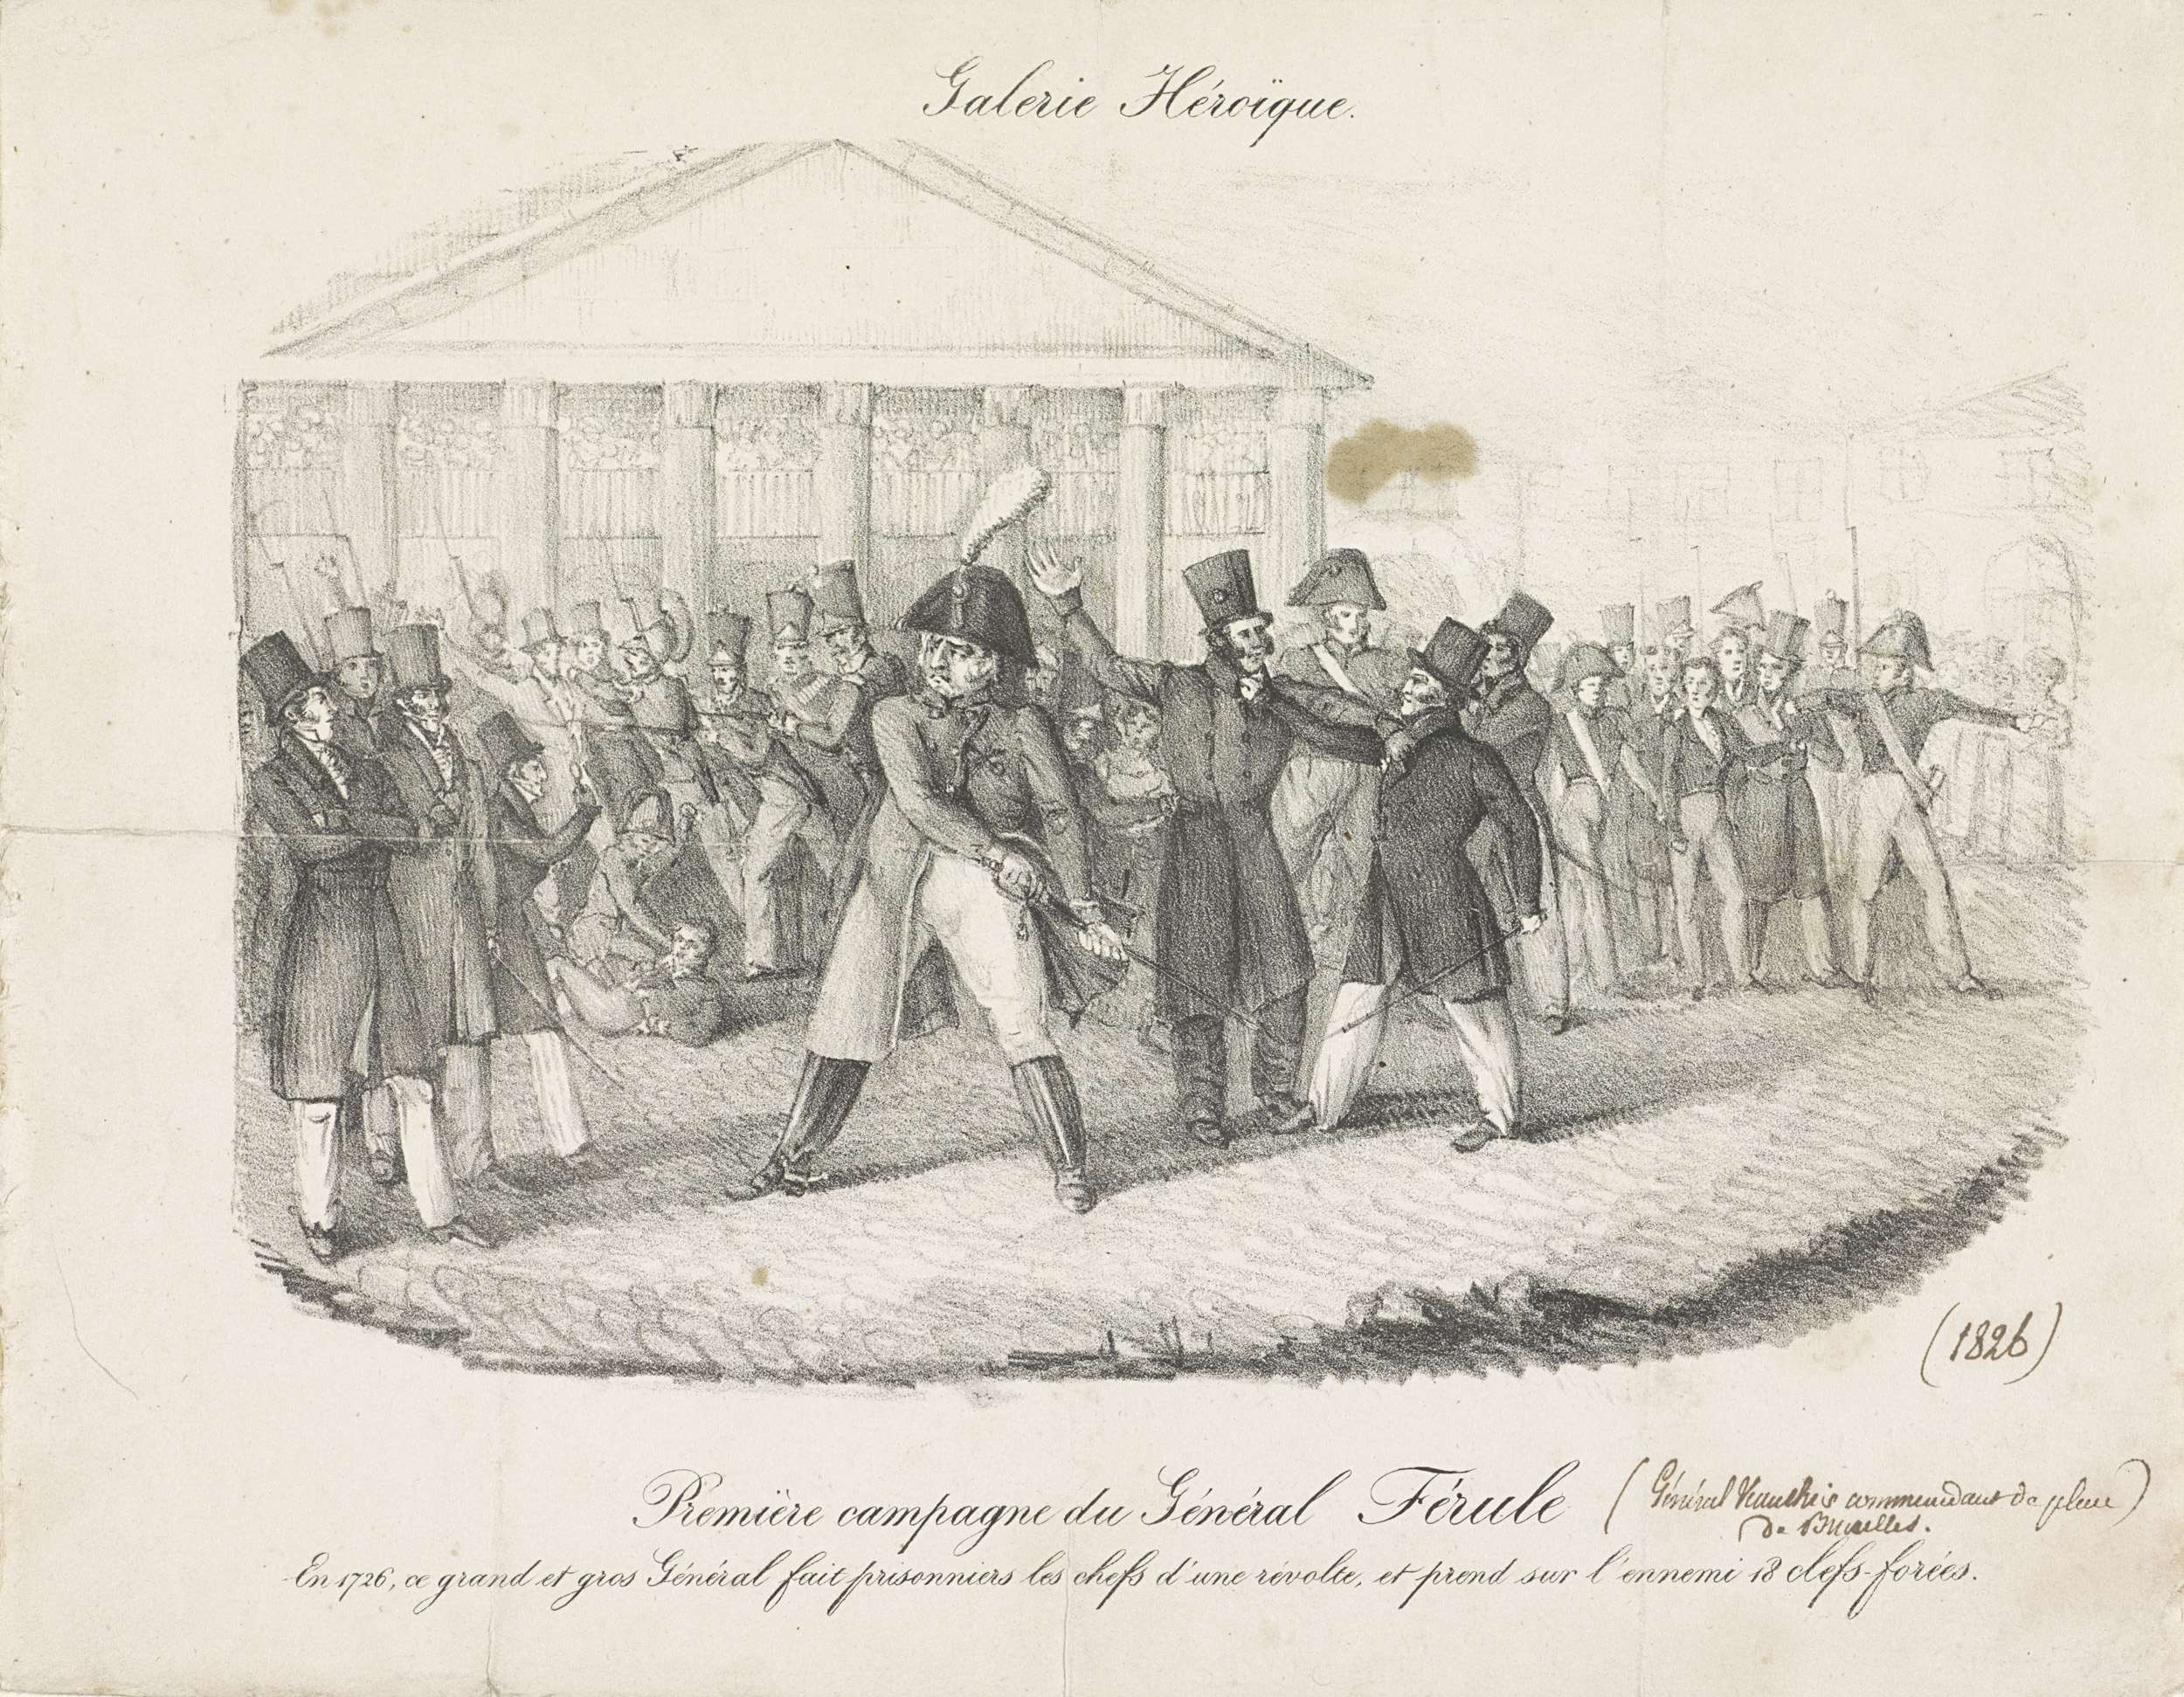 Galerie Héroïque.
(1826)
Première campagne du Général Férule
(Général Vauthier commandant de place
de Bruxelles.)
En 1726, ce grand et gros Général fait prisonniers les chefs d'une révolte, et prend sur l'ennemi 18 clefs-forées.